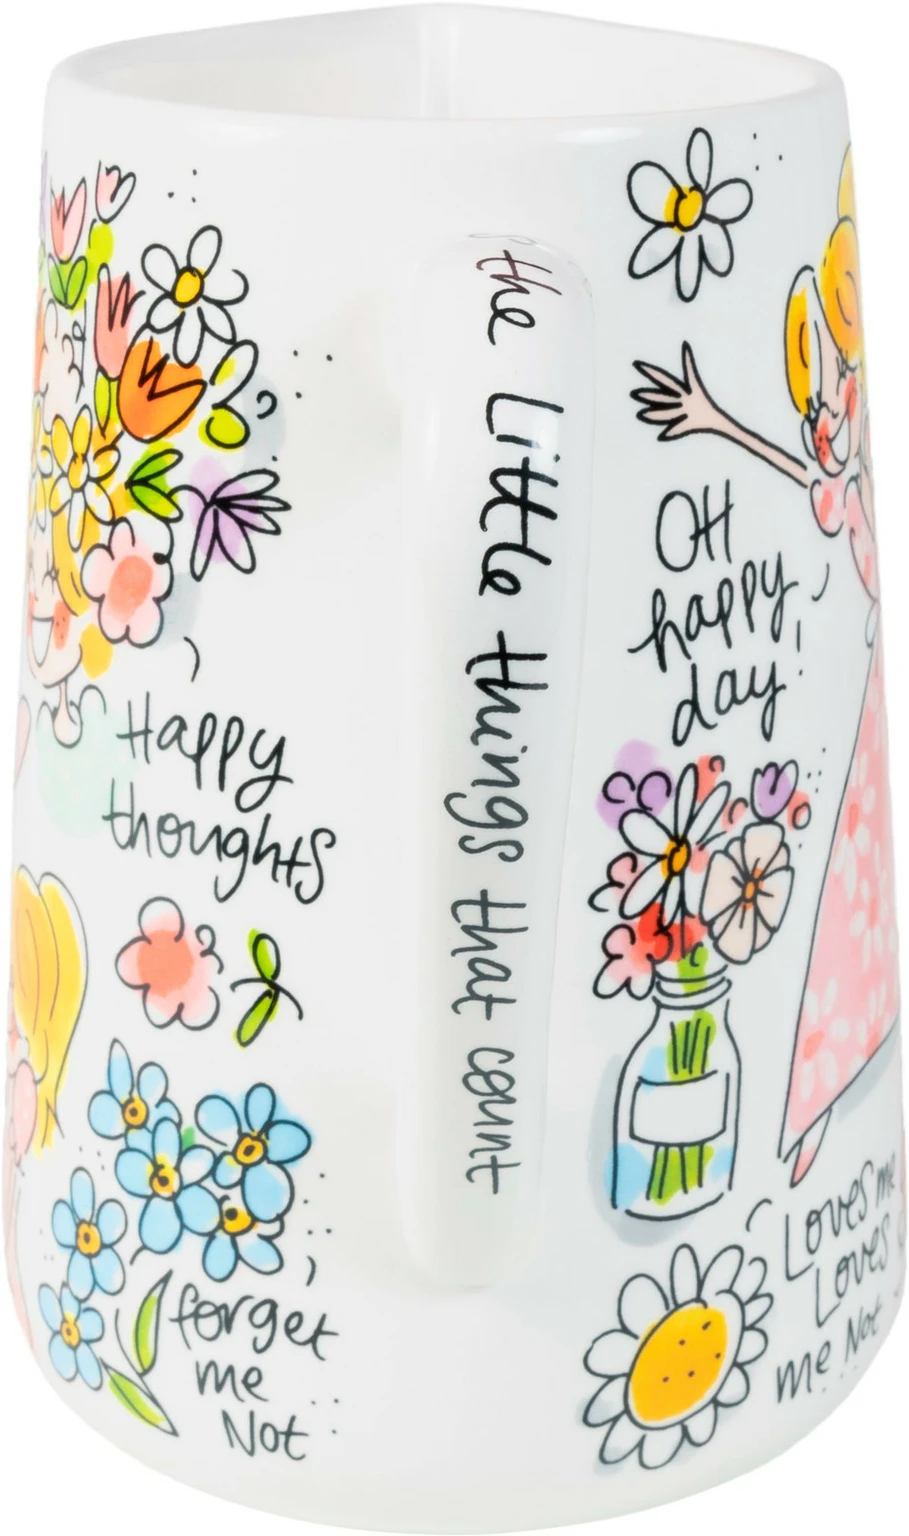 the Little things that count
OH
happy
day!
Happy
thoughts
forget
me
Not
Loves me
Loves
me Not